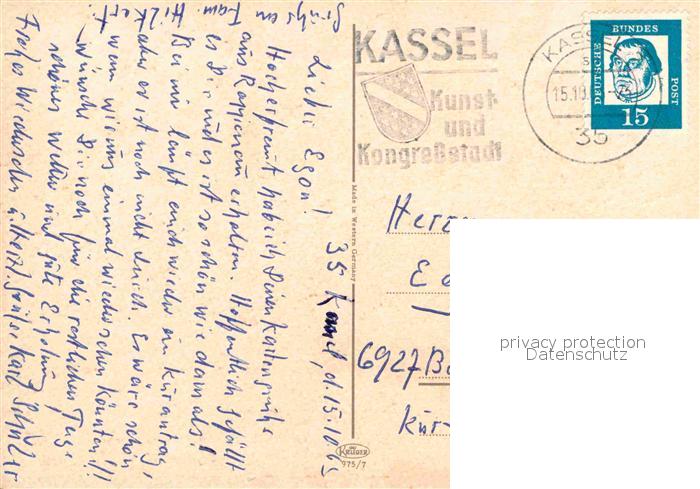 KASSEL
Kunst-
und
Kongreßstadt
KASSEL
15.10.
35
DEUTSCHE BUNDES POST
15
35 Kassel, d. 15.10.65
Lieber Egon!
Hocherfreut hab ich Deinen Kartengrüße
aus Rappenau erhalten. Hoffentlich gefällt
es Dir und es ist so schön wie damals!
Bei mir läuft auch wieder ein Kurantrag,
aber es ist noch nicht durch. Es wäre schön
wenn wir uns einmal wiedersehen könnten!!!
Wünsche Dir noch für die restlichen Tage
schönes Wetter und gute Erholung
Frohes Wiedersehen Karl
Grüße an Fam.
Made in Western Germany
KRÜGER
975/7
Herrn
6927 B
Kur-
privacy protection
Datenschutz